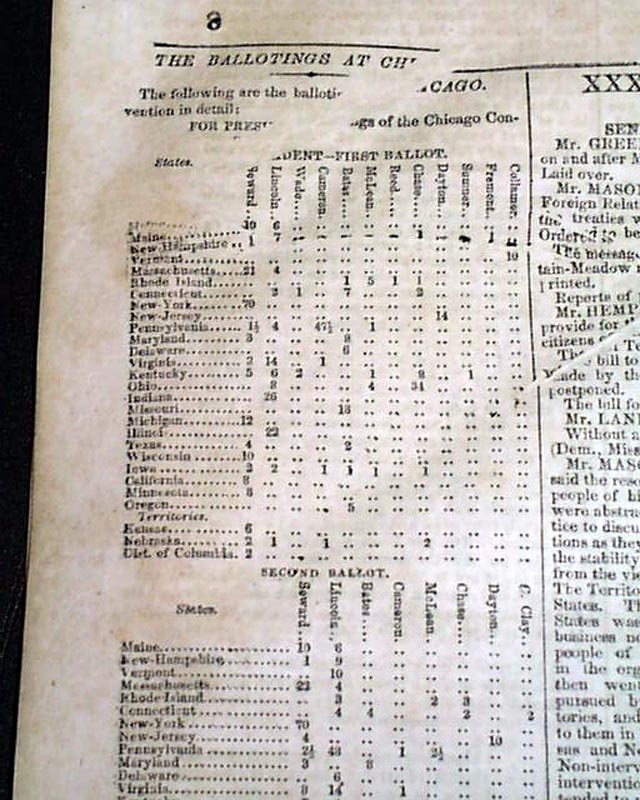 8
THE BALLOTINGS AT CH
CAGO.
The following are the balloti
gs of the Chicago Con-
vention in detail:
FOR PRES
DENT—FIRST BALLOT.
States.
Seward.. Lincoln.. Wade... Cameron. Bates... McLean.. Reed.... Chase... Dayton.. Sumner.. Fremont. Collamer.
Maine 10 6
New-Hampshire 1 7 1 1
Vermont 10
Massachusetts 21 4
Rhode Island 1 5 1 1
Connecticut 2 1 7 2
New-York 70
New-Jersey 14
Pennsylvania 1½ 4 47½ 1
Maryland 3 8
Delaware 6
Virginia 8 14 1
Kentucky 5 6 2 1 8 1
Ohio 8 4 34
Indiana 26
Missouri 18
Michigan 12
Illinois 22
Texas 4 2
Wisconsin 10
Iowa 2 2 1 1 1 1
California 8
Minnesota 8
Oregon 5
Territories.
Kansas 6
Nebraska 2 1 1 2
Dist. of Columbia. 2
SECOND BALLOT.
States.
Seward... Lincoln.. Bates.... Cameron. McLean.. Chase.... Dayton... C. Clay..
Maine 10 6
New-Hampshire 1 9
Vermont 10
Massachusetts 22 4
Rhode-Island 3 2 3
Connecticut 4 4 2 2
New-York 70
New-Jersey 4 10
Pennsylvania 2½ 48 1 2½
Maryland 3 8
Delaware 6
Virginia 8 14 1
XXX
SEN
Mr. GREE
on and after M
Laid over.
Mr. MASO
Foreign Relat
the treaties
Ordered to be
The messag
tain-Meadow
printed.
Reports of
Mr. HEMP
provide for
citizens Te
The bill to
made by the
postponed.
The bill fo
Mr. LAN
Without a
(Dem., Miss
Mr. MAS
said the reso
people of hi
were abstra
tice to discu
tions as they
the stability
from the vi
The Territo
States. T
States was
business n
people of
in the org
then went
pursued b
tories, and
to them in
sas and N
Non-interv
interventi